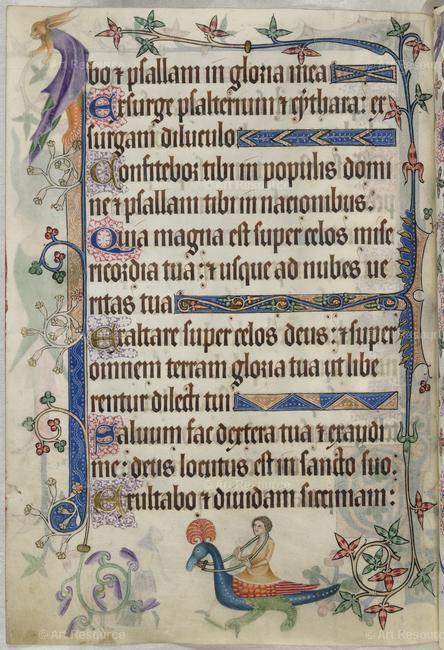 bo ⁊ psallam in gloria mea
Exsurge psalterium ⁊ cythara: ex
surgam diluculo
Confitebor tibi in populis domi
ne ⁊ psallam tibi in nacionibus.
Quia magna est super celos mise
ricordia tua: ⁊ usque ad nubes ue
ritas tua
Exaltare super celos deus: ⁊ super
omnem terram gloria tua ut libe
rentur dilecti tui
Saluum fac dextera tua ⁊ exaudi
me: deus locutus est in sancto suo:
Exultabo ⁊ diuidam siccimam:
© Art Resource
© Art Resource
© Art Resource
© Art Resource